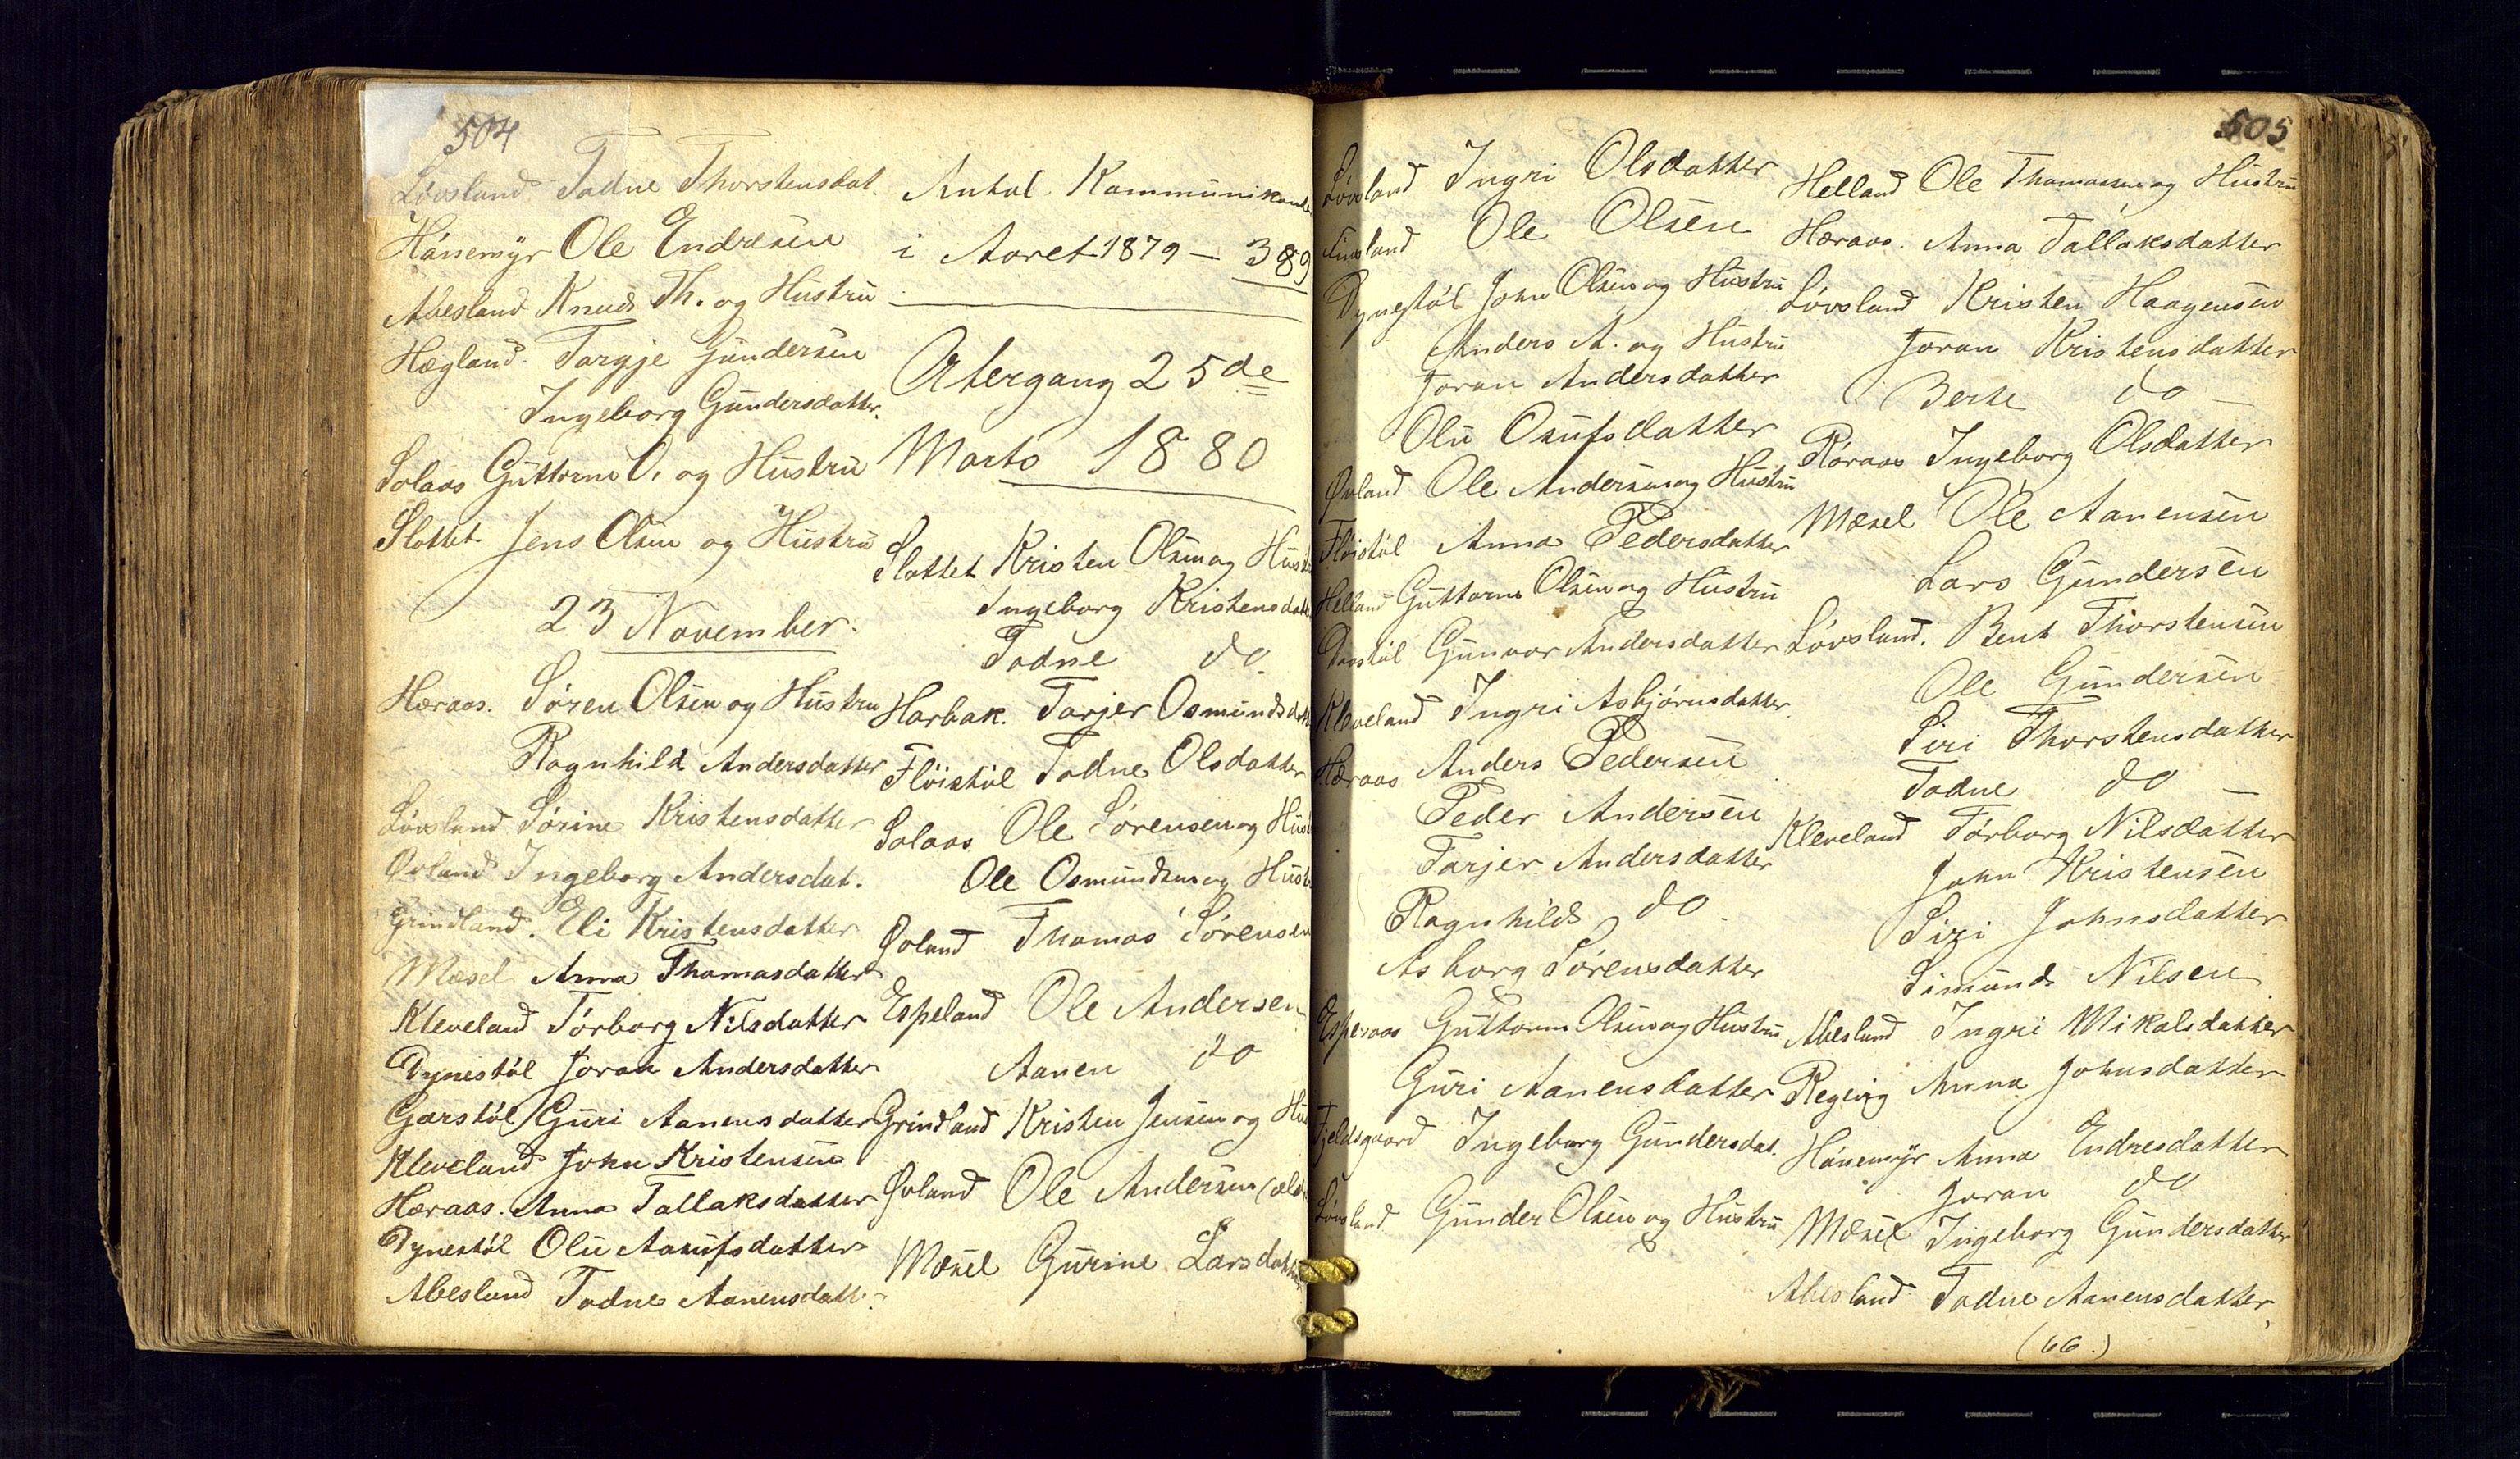 504
Lövsland Todne Thorstensdat.
Hánemÿr Ole Endresen
Abesland Knud Th. og Hustru
Hægland Torgje Gundersen
Ingeborg Gundersdatter.
Solaas Guttorm O. og Hustru
Slottet Jens Olsen og Hustru
23 November.
Hæraas. Sören Olsen og Hustru
Ragnhild Andersdatter
Lövsland Sörine Kristensdatter
Øvland Ingeborg Andersdat.
Grindland. Eli Kristensdatter
Mæsel Anna Thomasdatter
Kleveland Törborg Nilsdatter
Dynestöl Joran Andersdatter
Garstöl Guri Aanensdatter
Kleveland John Kristensen
Hæraas. Anna Tallaksdatter
Dynestöl Olu Aasufsdatter
Abesland Todne Aanensdatt.
Antal Kommunikander
i Aaret 1879 — 389
Altergang 25de
Marts 1880
Slottet Kristen Olsen og Hust
Ingeborg Kristensdatt
Todne do
Harbak. Tarjer Osmundsdatt
Flöistöl Todne Olsdatter
Solaas Ole Sörensen og Hust
Ole Osmundsen og Hust
Øvland Thomas Sörensen
Espeland Ole Andersen
Aanen do
Grindland Kristen Jensen og Hu
Øvland Ole Andersen (æld
Mæsel Gurine Larsdatter
505
Lövsland Ingri Olsdatter
Finsland Ole Olsen
Dynestöl John Olsen og Hustru
Anders A. og Hustru
Joran Andersdatter
Olu Osufsdatter
Øvland Ole Andersen og Hustru
Flöistöl Anna Pedersdatter
Helland Guttorm Olsen og Hustru
Gunvor Andersdatter
Kleveland Ingri Asbjörnsdatter
Hæraas Anders Pedersen
Peder Andersen
Tarjer Andersdatter
Ragnhild do
Asborg Sörensdatter
Esperaas Guttorm Olsen og Hustru
Guri Aanensdatter
Fjeldsgaard Ingeborg Gundersdat.
Lövsland Gunder Olsen og Hustru
Helland Ole Thomassen og Hustru
Hæraas. Anna Tallaksdatter
Lövsland Kristen Haagensen
Joran Kristensdatter
Berte do —
Röraas Ingeborg Olsdatter
Mæsel Ole Aanensen
Lars Gundersen
Lövsland. Bent Thorstensen
Ole Gundersen
Siri Thorstensdatter
Todne do —
Kleveland Törborg Nilsdatter
John Kristensen
Siri Johnsdatter
Simund Nilsen
Abesland Ingri Mikalsdatter
Regevig Anna Johnsdatter
Hánemÿr Anna Endresdatter
Joran do
Mæsel Ingeborg Gundersdatter
Abesland Todne Aanensdatter
(66.)